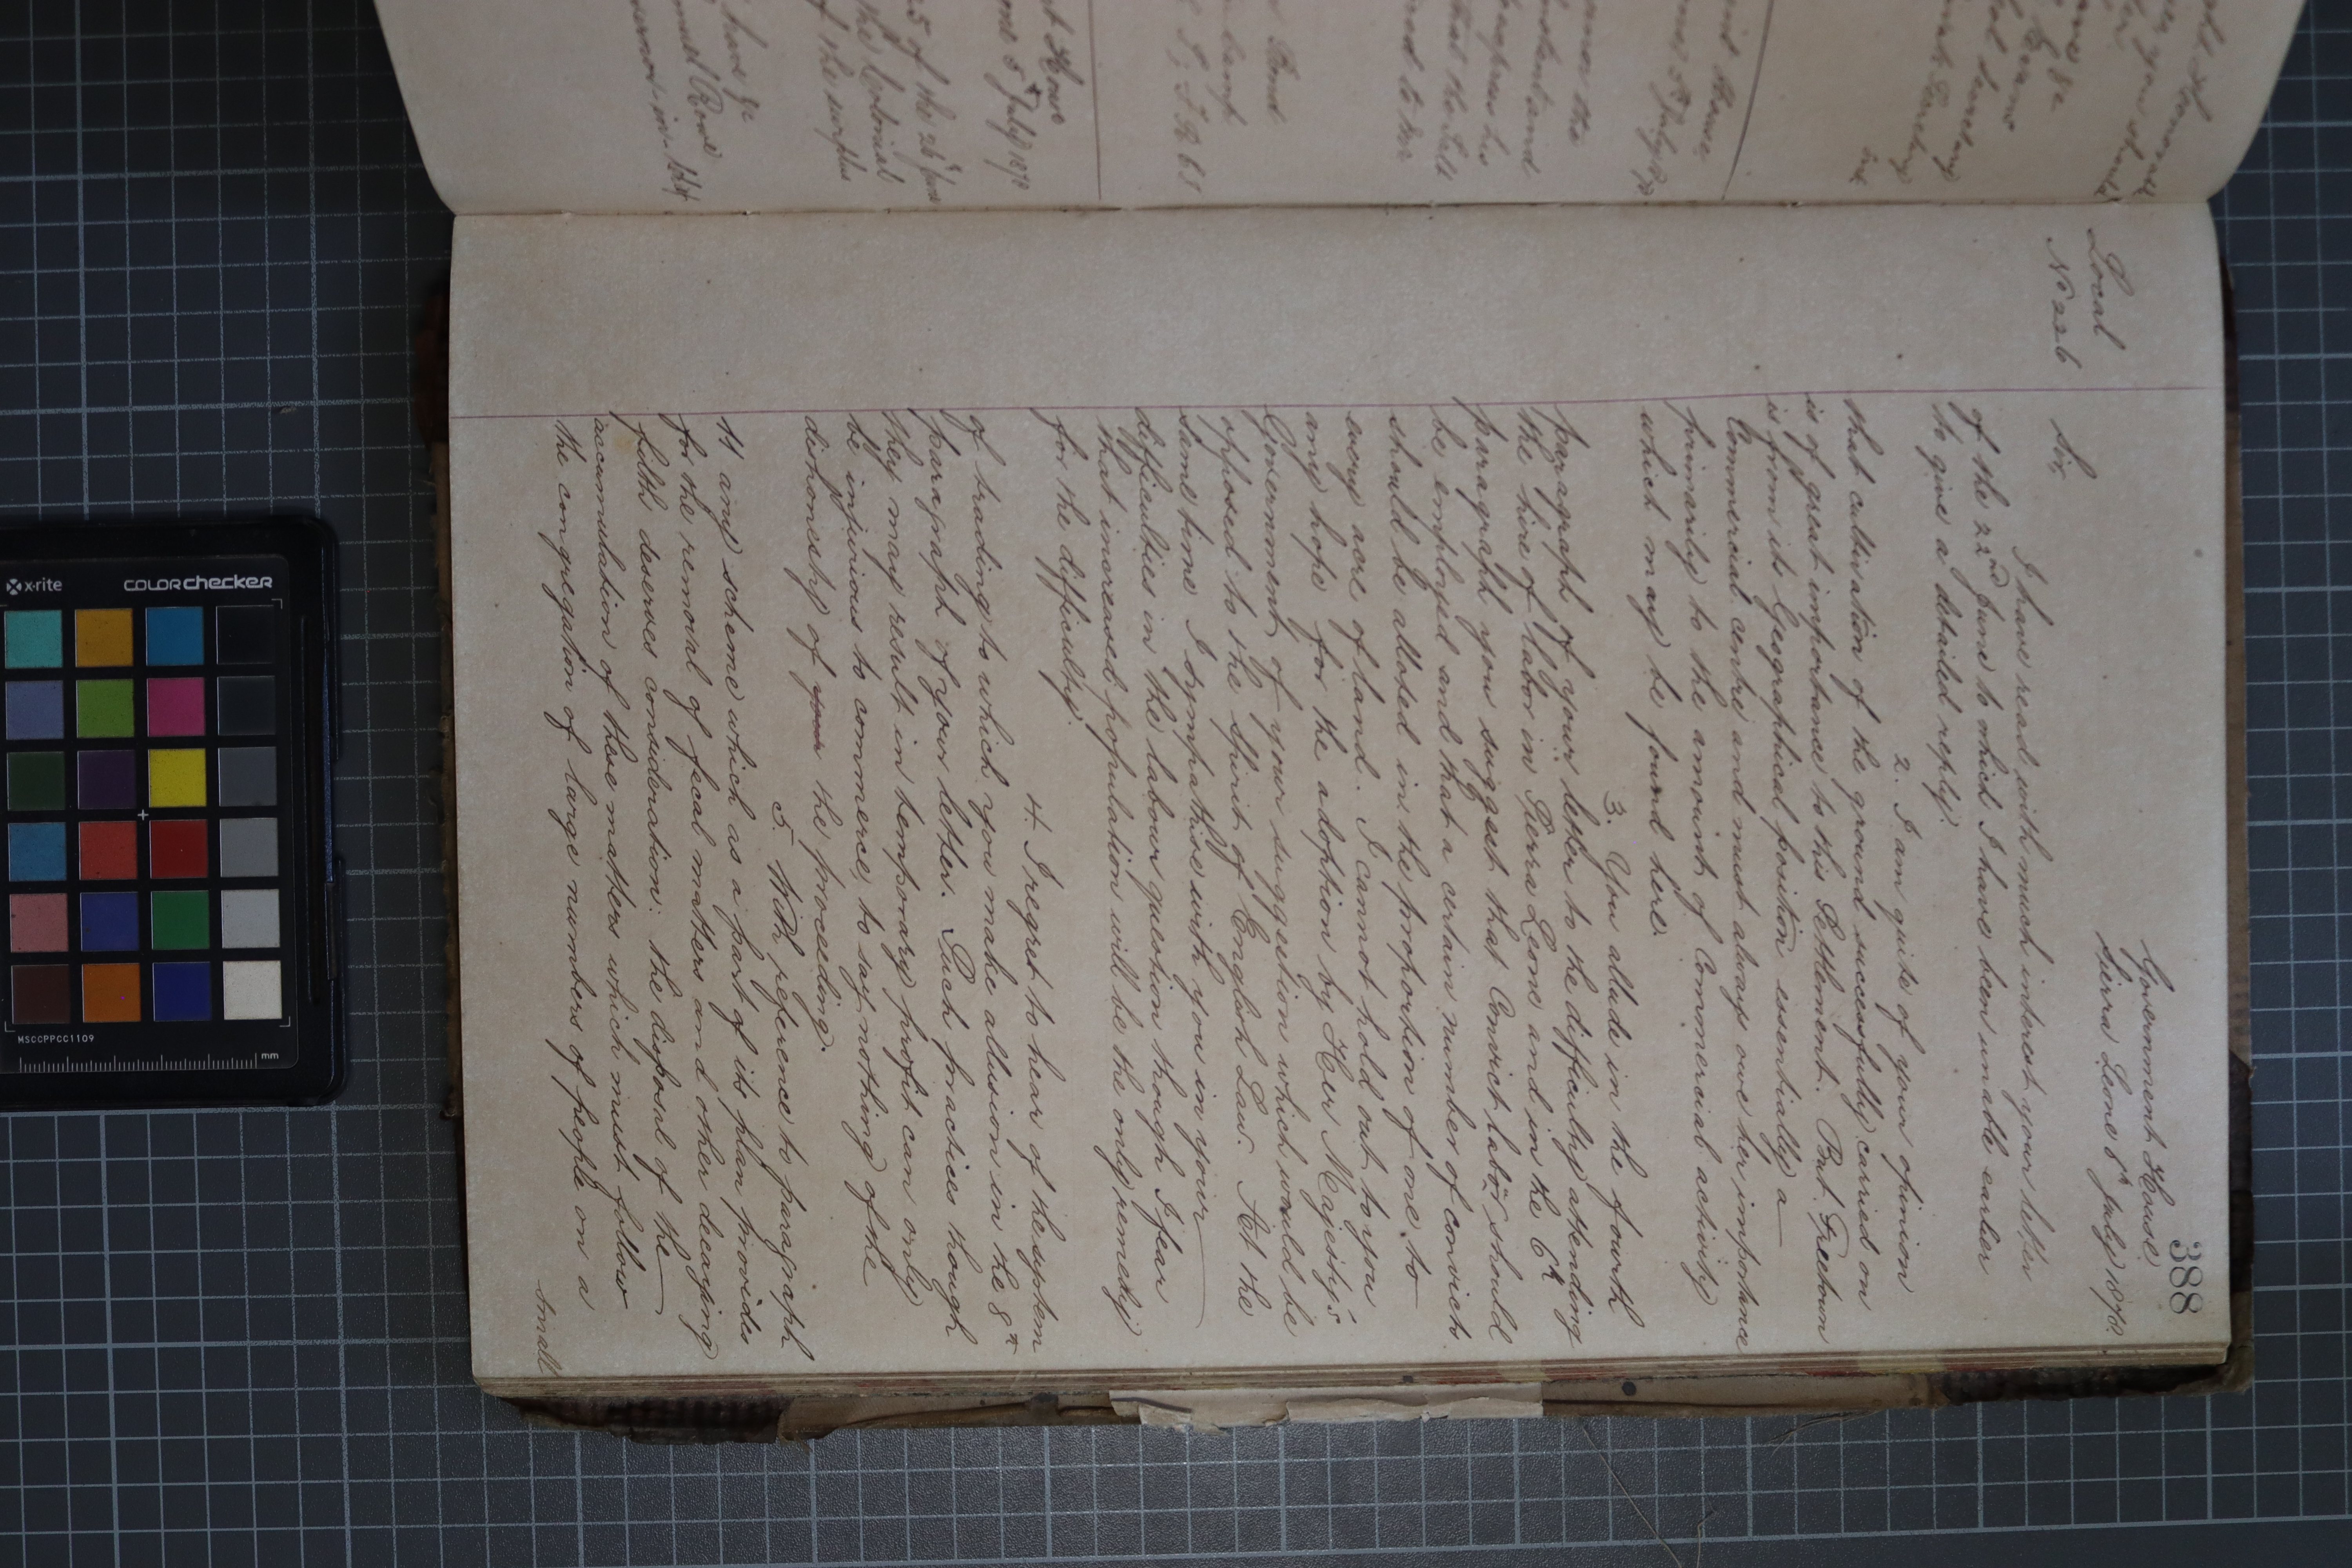 388
Local
No 226
Government House
Sierra Leone 8th July 1878.
Sir,
I have read with much interest your letter
of the 22nd June to which I have been unable earlier
to give a detailed reply.
2. I am quite of your opinion
that cultivation of the ground successfully carried on
is of great importance to this Settlement. But Freetown
is from its Geographical position essentially a
Commercial centre and must always owe her importance
primarily to the amount of Commercial activity
which may be found here.
3. You allude in the fourth
paragraph of your letter to the difficulty attending
the hire of labor in Sierra Leone and in the 6th
paragraph you suggest that Convict labor should
be employed and that a certain number of convicts
should be alloted in the proportion of one to
every acre of land. I cannot hold out to you
any hope for the adoption by Her Majesty's
Government of your suggestion which would be
opposed to the spirit of English Law. At the
same time I sympathise with you in your
difficulties in the labour question though I fear
that increased population will be the only remedy
for the difficulty.
4. I regret to hear of the system
of trading to which you make allusion in the 8th
paragraph of your letter. Such practices though
they may result in temporary profit can only
be injurious to commerce, to say nothing of the
dishonesty of your the proceeding.
5. With reference to paragraph
11 any scheme which as a part of its plan provides
for the removal of fecal matters and other decaying
filth deserves consideration: the disposal of the
accumulation of these matters which must follow
the congregation of large numbers of people on a
small
at House
one 5th July 1878
25 of the 26th June
the Colonial
of the surplus
have &c
muel Rowe
Governor in Chf
x-rite
COLORchecker
MSCCPPCC1109
mm